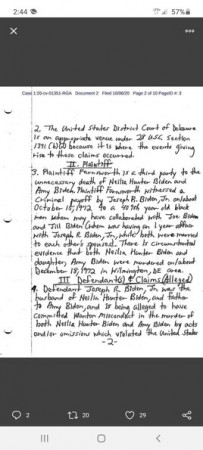 2:44
57%
Case 1:20-cv-01351-RGA Document 2 Filed 10/06/20 Page 2 of 20 PageID #: 3
2. The United States District Court of Delaware
is an appropriate venue under 28 U.S.C. section
1391 (b)(2) because it is where the events giving
rise to these claims occurred.
II. Plaintiff
3. Plaintiff Farnsworth is a third party to the
unnecessary death of Neilia Hunter Biden and
Amy Biden. Plaintiff Farnsworth witnessed a
Criminal payoff by Joseph R. Biden, Jr. on/about
October 15, 1972 to a year old black
man whom may have collaborated with Joe Biden
and Jill Biden (whom was having an 1 year affair
with Joseph R. Biden, Jr. while both were married
to each other's spouses). There is circumstantial
evidence that both Neilia Hunter Biden and
daughter, Amy Biden were murdered on/about
December 18, 1972 in Wilmington, DE area.
III Defendant(s) & Claims (Alleged)
4. Defendant Joseph R. Biden, Jr. was the
husband of Neilia Hunter Biden, and father
to Amy Biden, and is being alleged to have
committed Wanton Misconduct in the murder of
both Neilia Hunter Biden and Amy Biden by acts
and/or omissions which violated the United States
-2-
2
20
29